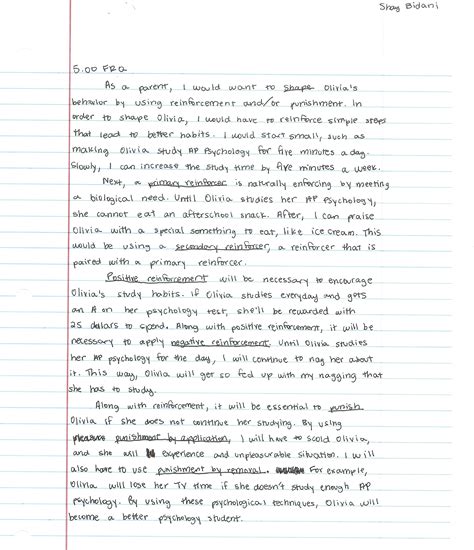 Shay Bidani
5.00 FRQ
As a parent, I would want to shape Olivia's
behavior by using reinforcement and/or punishment. In
order to shape Olivia, I would have to reinforce simple steps
that lead to better habits. I would start small, such as
making Olivia study AP Psychology for five minutes a day.
Slowly, I can increase the study time by five minutes a week.
Next, a primary reinforcer is naturally enforcing by meeting
a biological need. Until Olivia studies her AP Psychology,
she cannot eat an afterschool snack. After, I can praise
Olivia with a special something to eat, like ice cream. This
would be using a secondary reinforcer, a reinforcer that is
paired with a primary reinforcer.
Positive reinforcement will be necessary to encourage
Olivia's study habits. If Olivia studies everyday and gets
an A on her psychology test, she'll be rewarded with
25 dollars to spend. Along with positive reinforcement, it will be
necessary to apply negative reinforcement. Until Olivia studies
her AP psychology for the day, I will continue to nag her about
it. This way, Olivia will get so fed up with my nagging that
she has to study.
Along with reinforcement, it will be essential to punish
Olivia if she does not continue her studying. By using
punishment by application, I will have to scold Olivia,
and she will experience and unpleasurable situation. I will
also have to use punishment by removal. For example,
Olivia will lose her TV time if she doesn't study enough AP
Psychology. By using these psychological techniques, Olivia will
become a better psychology student.